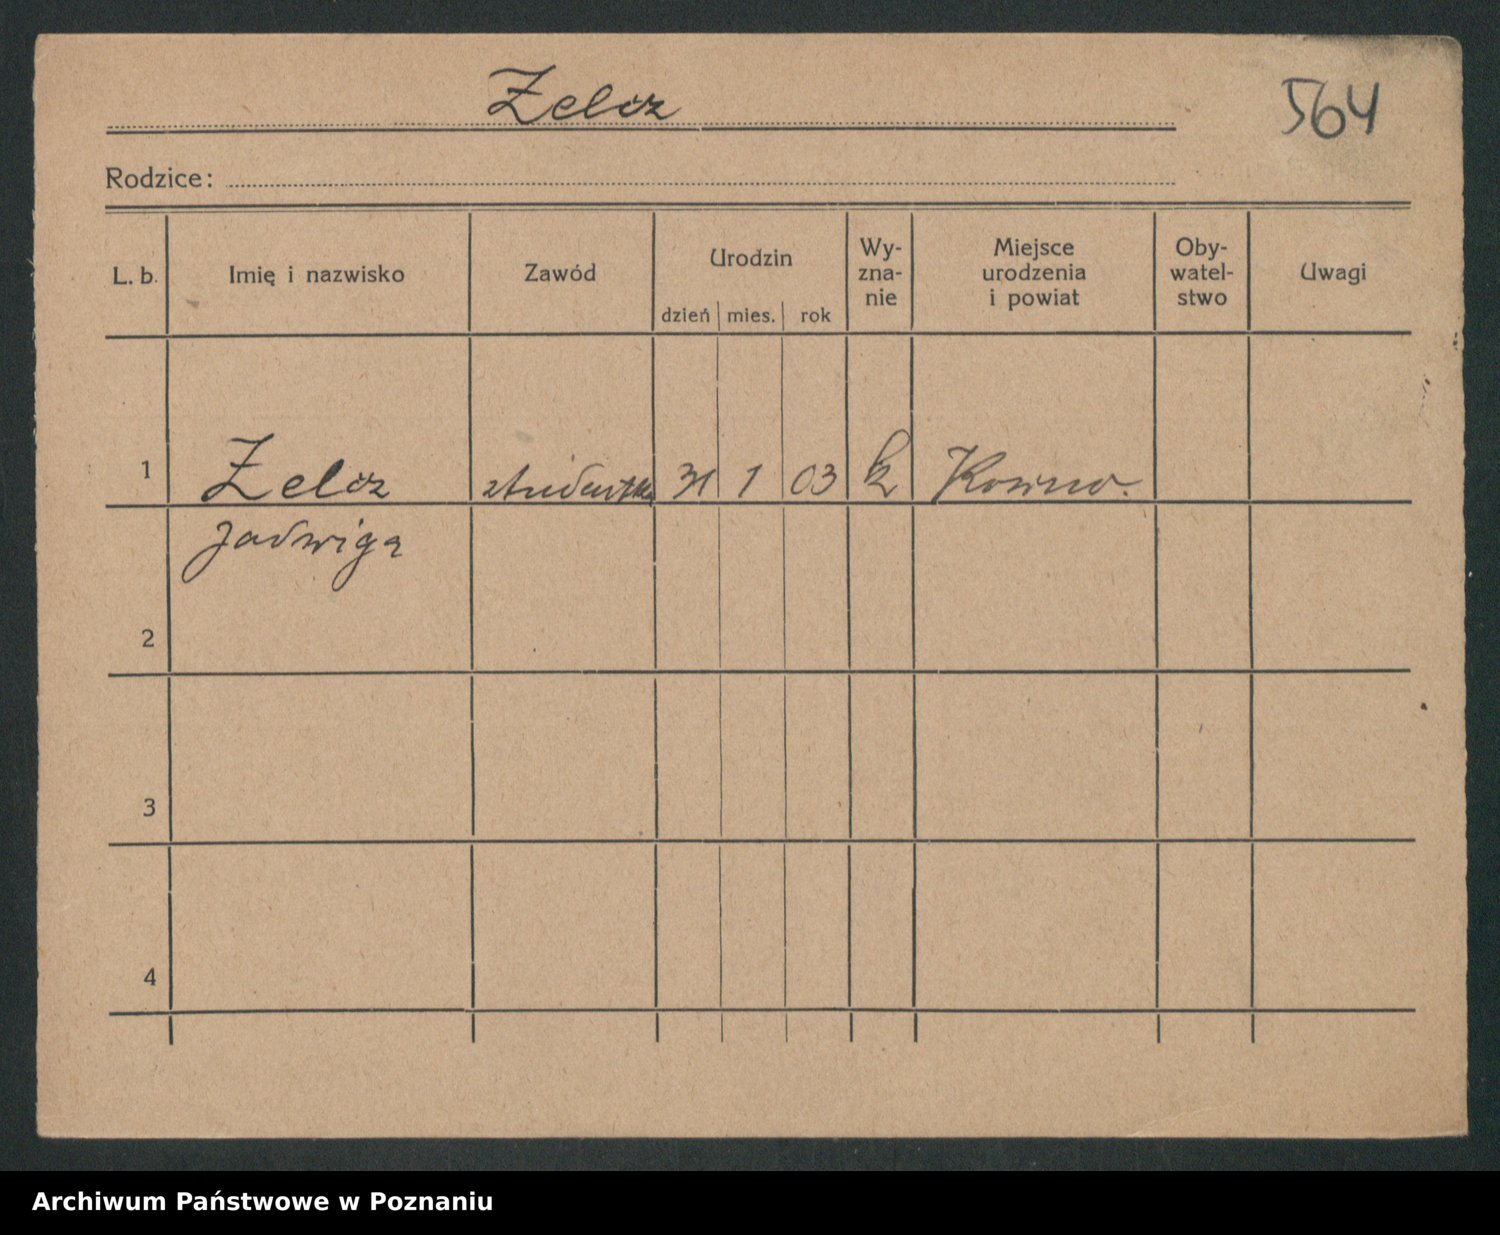 Zelcz
564
Rodzice:
L. b. Imię i nazwisko Zawód Urodzin dzień mies. rok Wy- zna- nie Miejsce urodzenia i powiat Oby- watel- stwo Uwagi
1 Zelcz studentka 31 1 03 k Kowno.
Jadwiga
2
3
4
Archiwum Państwowe w Poznaniu